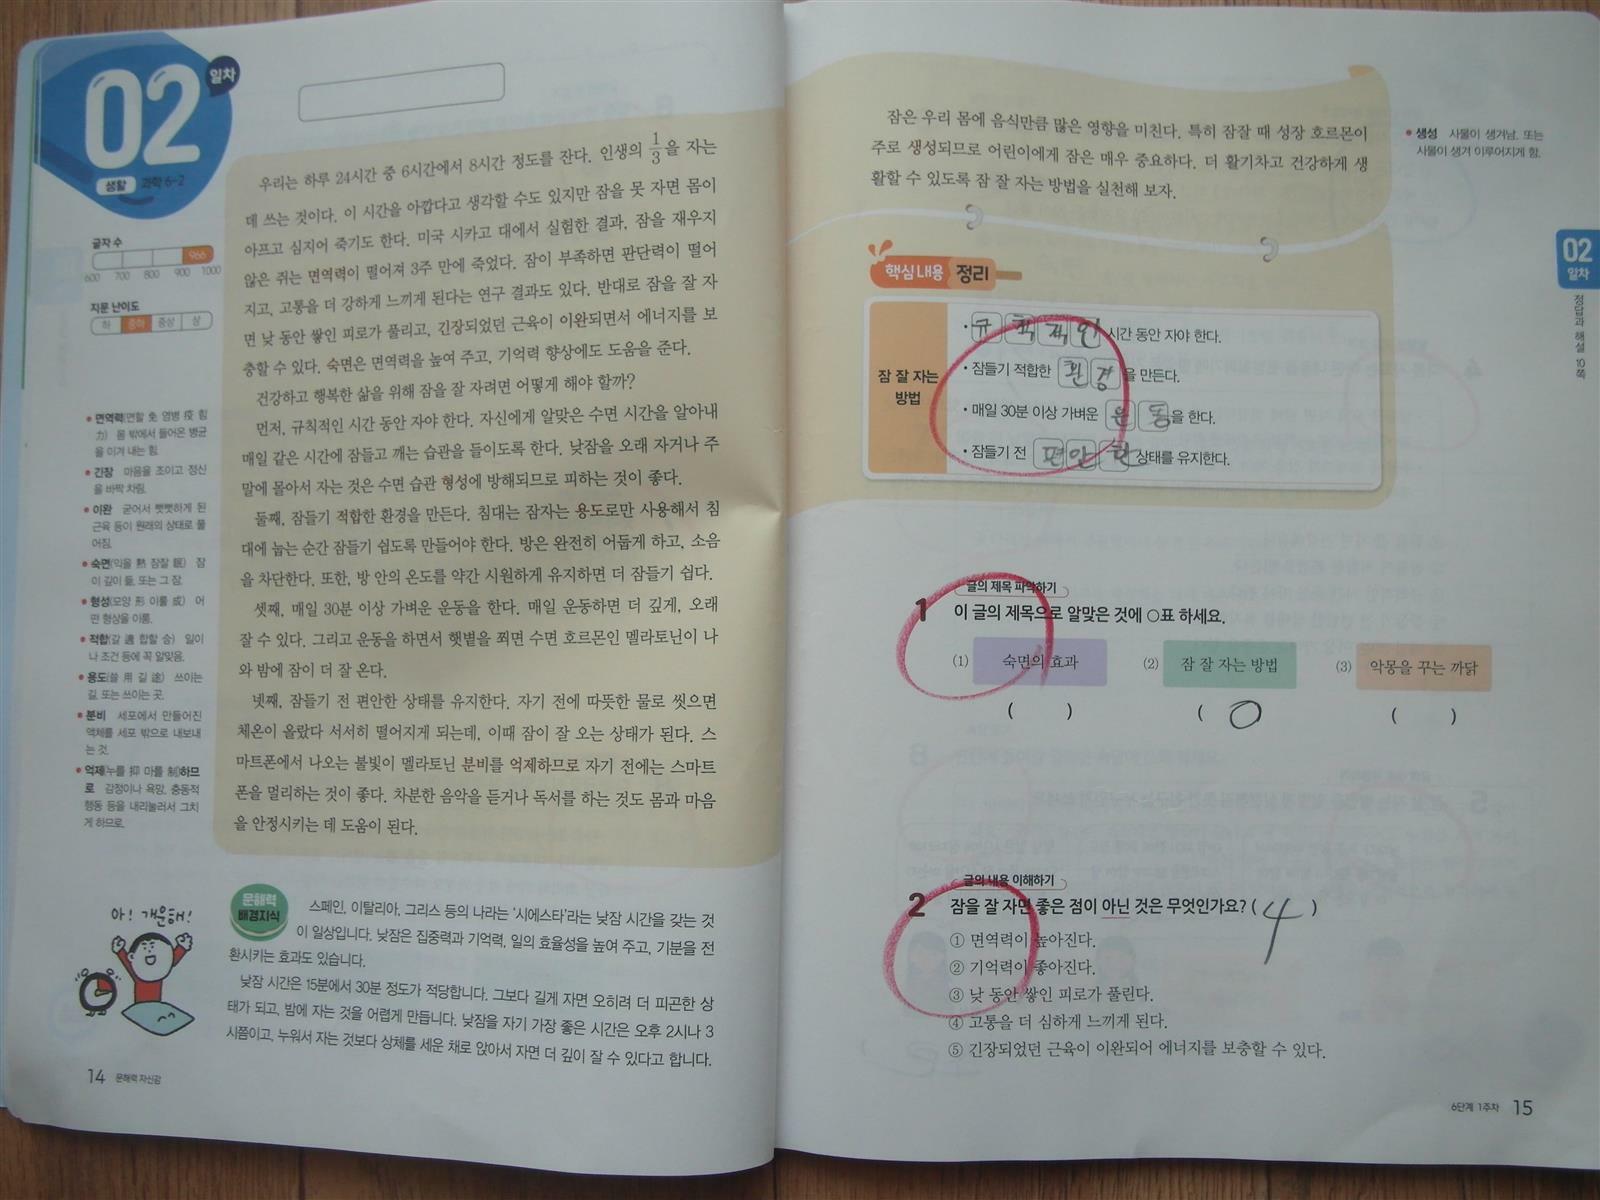 02
일차
생활 과학 6-2
글자 수
966
600 700 800 900 1000
지문 난이도
하 중하 중상 상
우리는 하루 24시간 중 6시간에서 8시간 정도를 잔다. 인생의 1/3을 자는
데 쓰는 것이다. 이 시간을 아깝다고 생각할 수도 있지만 잠을 못 자면 몸이
아프고 심지어 죽기도 한다. 미국 시카고 대에서 실험한 결과, 잠을 재우지
않은 쥐는 면역력이 떨어져 3주 만에 죽었다. 잠이 부족하면 판단력이 떨어
지고, 고통을 더 강하게 느끼게 된다는 연구 결과도 있다. 반대로 잠을 잘 자
면 낮 동안 쌓인 피로가 풀리고, 긴장되었던 근육이 이완되면서 에너지를 보
충할 수 있다. 숙면은 면역력을 높여 주고, 기억력 향상에도 도움을 준다.
건강하고 행복한 삶을 위해 잠을 잘 자려면 어떻게 해야 할까?
먼저, 규칙적인 시간 동안 자야 한다. 자신에게 알맞은 수면 시간을 알아내
매일 같은 시간에 잠들고 깨는 습관을 들이도록 한다. 낮잠을 오래 자거나 주
말에 몰아서 자는 것은 수면 습관 형성에 방해되므로 피하는 것이 좋다.
둘째, 잠들기 적합한 환경을 만든다. 침대는 잠자는 용도로만 사용해서 침
대에 눕는 순간 잠들기 쉽도록 만들어야 한다. 방은 완전히 어둡게 하고, 소음
을 차단한다. 또한, 방 안의 온도를 약간 시원하게 유지하면 더 잠들기 쉽다.
셋째, 매일 30분 이상 가벼운 운동을 한다. 매일 운동하면 더 깊게, 오래
잘 수 있다. 그리고 운동을 하면서 햇볕을 쬐면 수면 호르몬인 멜라토닌이 나
와 밤에 잠이 더 잘 온다.
넷째, 잠들기 전 편안한 상태를 유지한다. 자기 전에 따뜻한 물로 씻으면
체온이 올랐다 서서히 떨어지게 되는데, 이때 잠이 잘 오는 상태가 된다. 스
마트폰에서 나오는 불빛이 멜라토닌 분비를 억제하므로 자기 전에는 스마트
폰을 멀리하는 것이 좋다. 차분한 음악을 듣거나 독서를 하는 것도 몸과 마음
을 안정시키는 데 도움이 된다.
• 면역력(면할 免 염병 疫 힘
力) 몸 밖에서 들어온 병균
을 이겨 내는 힘.
• 긴장 마음을 조이고 정신
을 바짝 차림.
• 이완 굳어서 뻣뻣하게 된
근육 등이 원래의 상태로 풀
어짐.
• 숙면(익을 熟 잠잘 眠) 잠
이 깊이 듦. 또는 그 잠.
• 형성(모양 形 이룰 成) 어
떤 형상을 이룸.
• 적합(갈 適 합할 合) 일이
나 조건 등에 꼭 알맞음.
• 용도(쓸 用 길 途) 쓰이는
길. 또는 쓰이는 곳.
• 분비 세포에서 만들어진
액체를 세포 밖으로 내보내
는 것.
• 억제(누를 抑 마를 制)하므
로 감정이나 욕망, 충동적
행동 등을 내리눌러서 그치
게 하므로.
아! 개운해!
문해력
배경지식
스페인, 이탈리아, 그리스 등의 나라는 '시에스타'라는 낮잠 시간을 갖는 것
이 일상입니다. 낮잠은 집중력과 기억력, 일의 효율성을 높여 주고, 기분을 전
환시키는 효과도 있습니다.
낮잠 시간은 15분에서 30분 정도가 적당합니다. 그보다 길게 자면 오히려 더 피곤한 상
태가 되고, 밤에 자는 것을 어렵게 만듭니다. 낮잠을 자기 가장 좋은 시간은 오후 2시나 3
시쯤이고, 누워서 자는 것보다 상체를 세운 채로 앉아서 자면 더 깊이 잘 수 있다고 합니다.
14 문해력 자신감
잠은 우리 몸에 음식만큼 많은 영향을 미친다. 특히 잠잘 때 성장 호르몬이
주로 생성되므로 어린이에게 잠은 매우 중요하다. 더 활기차고 건강하게 생
활할 수 있도록 잠 잘 자는 방법을 실천해 보자.
• 생성 사물이 생겨남. 또는
사물이 생겨 이루어지게 함.
02
일차
정답과 해설 10쪽
핵심 내용 정리
잠 잘 자는
방법
• 규칙적인 시간 동안 자야 한다.
• 잠들기 적합한 환경을 만든다.
• 매일 30분 이상 가벼운 운동을 한다.
• 잠들기 전 편안한 상태를 유지한다.
글의 제목 파악하기
1 이 글의 제목으로 알맞은 것에 ○표 하세요.
(1) 숙면의 효과 (2) 잠 잘 자는 방법 (3) 악몽을 꾸는 까닭
( ) ( O ) ( )
글의 내용 이해하기
2 잠을 잘 자면 좋은 점이 아닌 것은 무엇인가요? ( 4 )
① 면역력이 높아진다.
② 기억력이 좋아진다.
③ 낮 동안 쌓인 피로가 풀린다.
④ 고통을 더 심하게 느끼게 된다.
⑤ 긴장되었던 근육이 이완되어 에너지를 보충할 수 있다.
6단계 1주차 15